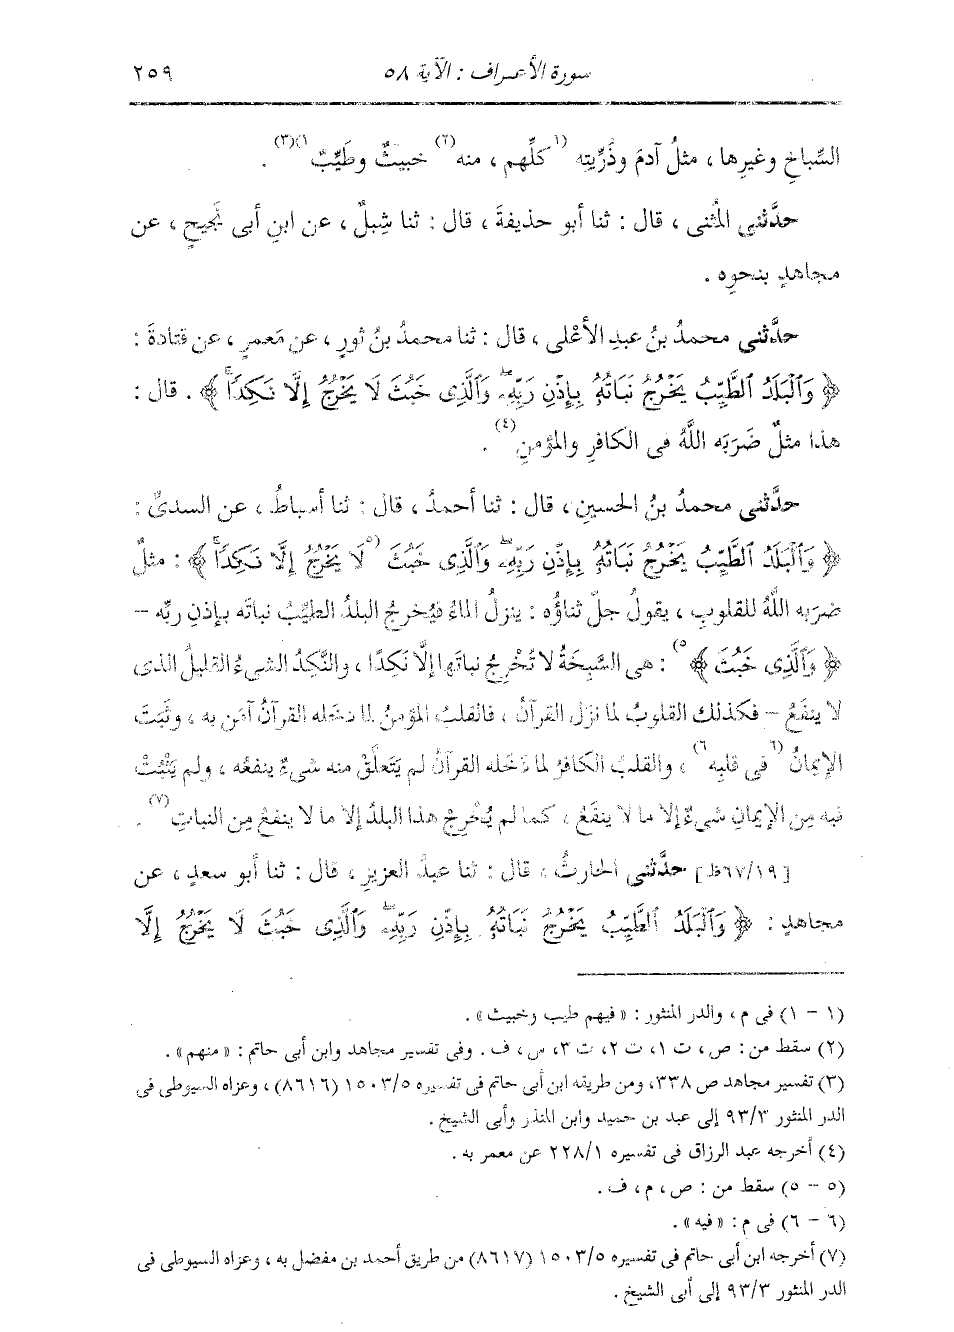 سورة الأعراف : الآية ٥٨ ٢٥٩
السِّباخِ وغيرِها ، مثلُ آدمَ وذُرِّيتِه (١كلِّهم ، منه(٢) خبيثٌ وطَيِّبٌ١)(٣) .
حدَّثني المُثنى ، قال : ثنا أبو حذيفةَ ، قال : ثنا شِبلٌ ، عن ابنِ أبى نَجيحٍ ، عن
مجاهدٍ بنحوِه .
حدَّثني محمدُ بنُ عبدِ الأعْلى ، قال : ثنا محمدُ بنُ ثورٍ ، عن مَعمرٍ ، عن قتادةَ :
﴿ وَٱلْبَلَدُ ٱلطَّيِّبُ يَخْرُجُ نَبَاتُهُۥ بِإِذْنِ رَبِّهِۦۖ وَٱلَّذِى خَبُثَ لَا يَخْرُجُ إِلَّا نَكِدًاۚ ﴾ . قال :
هذا مثلٌ ضَرَبَه اللَّهُ فى الكافرِ والمؤمنِ(٤) .
حدَّثني محمدُ بنُ الحسينِ ، قال : ثنا أحمدُ ، قال : ثنا أسباطُ ، عن السدىِّ :
﴿ وَٱلْبَلَدُ ٱلطَّيِّبُ يَخْرُجُ نَبَاتُهُۥ بِإِذْنِ رَبِّهِۦۖ وَٱلَّذِى خَبُثَ (٥لَا يَخْرُجُ إِلَّا نَكِدًاۚ ﴾ : مثلٌ
ضرَبه اللَّهُ للقلوبِ ، يقولُ جلّ ثناؤُه : ينزلُ الماءُ فيُخرجُ البلدُ الطيِّبُ نباتَه بإذنِ ربِّه –
﴿ وَٱلَّذِى خَبُثَ ﴾٥) : هى السَّبِخَةُ لا تُخرجُ نباتَها إلَّا نَكِدًا ، والنَّكِدُ الشىءُ القليلُ الذى
لا ينفَعُ – فكذلك القلوبُ لما نزَل القرآنُ ، فالقلبُ المؤمنُ لما دخَله القرآنُ آمَن به ، وثَبَت
الإيمانُ (٦فى قلبِه٦) ، والقلبُ الكافرُ لما دَخَله القرآنُ لم يَتعلَّقْ منه شىءٌ ينفعُه ، ولم يَثْبُتْ
فيه مِن الإيمانِ شىءٌ إلا ما لا ينفَعُ ، كما لم يُخْرِجْ هذا البلدُ إلا ما لا ينفعُ مِن النباتِ(٧) .
[٦٧/١٩ظ] حدَّثني الحارثُ ، قال : ثنا عبدُ العزيزِ ، قال : ثنا أبو سعدٍ ، عن
مجاهدٍ : ﴿ وَٱلْبَلَدُ ٱلطَّيِّبُ يَخْرُجُ نَبَاتُهُۥ بِإِذْنِ رَبِّهِۦۖ وَٱلَّذِى خَبُثَ لَا يَخْرُجُ إِلَّا
(١ – ١) فى م ، والدر المنثور : «فيهم طيب وخبيث» .
(٢) سقط من : ص ، ت ١، ت ٢، ت ٣، س ، ف . وفى تفسير مجاهد وابن أبى حاتم : «منهم» .
(٣) تفسير مجاهد ص ٣٣٨، ومن طريقه ابن أبى حاتم فى تفسيره ١٥٠٣/٥ (٨٦١٦) ، وعزاه السيوطى فى
الدر المنثور ٩٣/٣ إلى عبد بن حميد وابن المنذر وأبى الشيخ .
(٤) أخرجه عبد الرزاق فى تفسيره ٢٢٨/١ عن معمر به .
(٥ – ٥) سقط من : ص ، م ، ف .
(٦ – ٦) فى م : «فيه» .
(٧) أخرجه ابن أبى حاتم فى تفسيره ١٥٠٣/٥ (٨٦١٧) من طريق أحمد بن مفضل به ، وعزاه السيوطى فى
الدر المنثور ٩٣/٣ إلى أبى الشيخ .